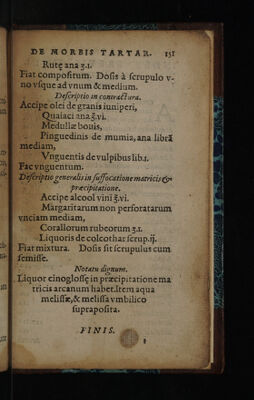 DE MORBIS TARTAR. 151
Rutę ana ʒ.1.
Fiat compositum. Dosis à scrupulo v-
no vsque ad vnum & medium.
Descriptio in contractura.
Accipe olei de granis iuniperi,
Quaiaci ana ℥.vi.
Medullæ bouis,
Pinguedinis de mumia, ana librã
mediam,
Vnguentis de vulpibus lib.1.
Fac vnguentum.
Descriptio generalis in suffocatione matricis &
præcipitatione.
Accipe alcool vini ℥.vi.
Margaritarum non perforatarum
vnciam mediam,
Corallorum rubeorum ʒ.1.
Liquoris de colcothar scrup.ij.
Fiat mixtura. Dosis sit scrupulus cum
semisse.
Notatu dignum.
Liquor cinoglossę in præcipitatione ma
tricis arcanum habet. Item aqua
melissæ, & melissa vmbilico
supraposita.
FINIS.